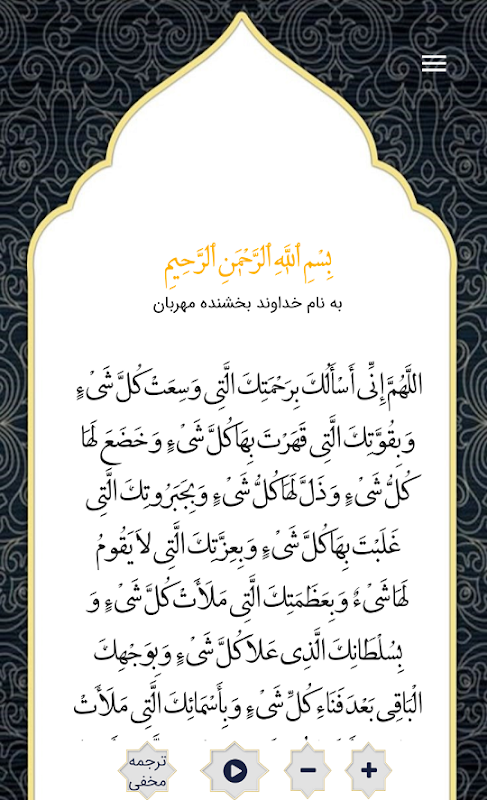 بِسْمِ ٱللَّهِ ٱلرَّحْمَٰنِ ٱلرَّحِيمِ
به نام خداوند بخشنده مهربان
اللَّهُمَّ إِنِّى أَسْأَلُكَ بِرَحْمَتِكَ الَّتِى وَسِعَتْ كُلَّ شَىْءٍ
وَ بِقُوَّتِكَ الَّتِى قَهَرْتَ بِهَا كُلَّ شَىْءٍ وَ خَضَعَ لَهَا
كُلُّ شَىْءٍ وَ ذَلَّ لَهَا كُلُّ شَىْءٍ وَ بِجَبَرُوتِكَ الَّتِى
غَلَبْتَ بِهَا كُلَّ شَىْءٍ وَ بِعِزَّتِكَ الَّتِى لاَ يَقُومُ
لَهَا شَىْءٌ وَ بِعَظَمَتِكَ الَّتِى مَلَأَتْ كُلَّ شَىْءٍ وَ
بِسُلْطَانِكَ الَّذِى عَلاَ كُلَّ شَىْءٍ وَ بِوَجْهِكَ
الْبَاقِى بَعْدَ فَنَاءِ كُلِّ شَىْءٍ وَ بِأَسْمَائِكَ الَّتِى مَلَأَتْ
ترجمه
مخفی